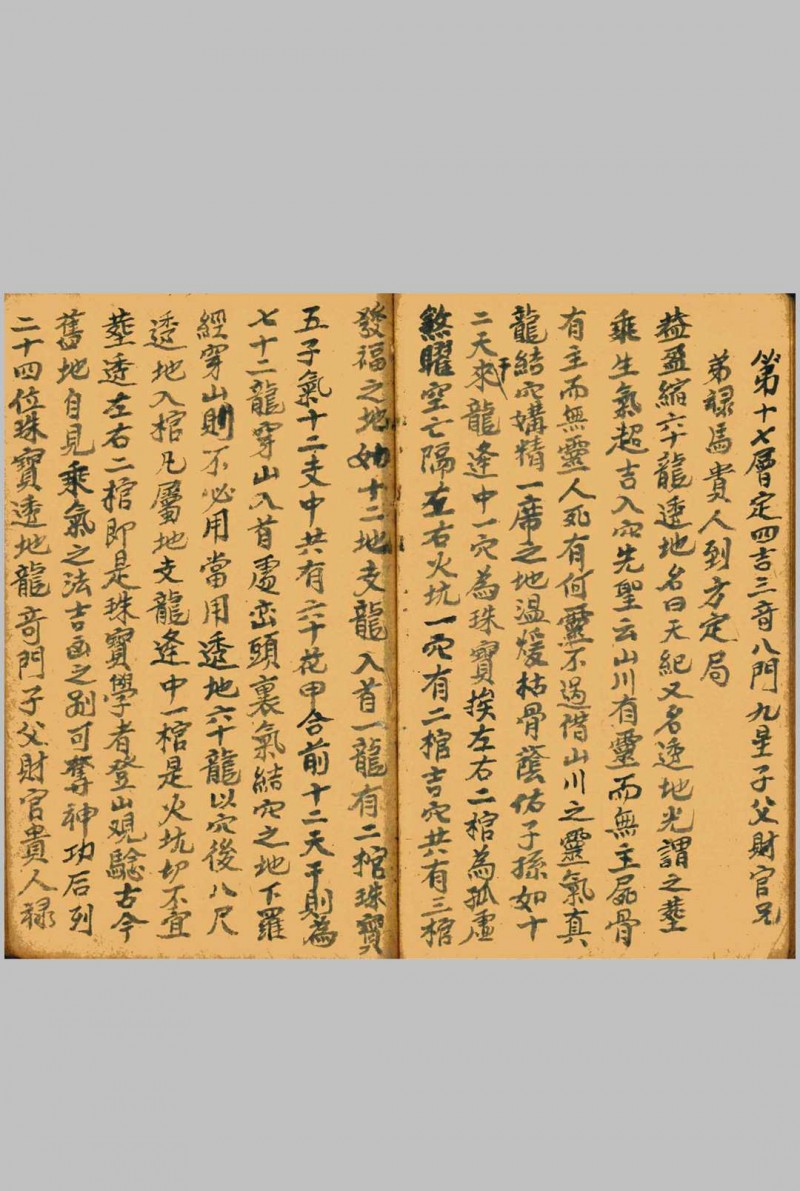 第十七層定四吉三奇八門九星子父財官兄
弟祿馬貴人到方定局
葢盈縮六十龍透地名曰天紀又名透地光謂之葬
乘生氣超吉入穴先聖云山川有靈而無主屍骨
有主而無靈人死有何靈不過借山川之靈氣真
龍結穴媾精一席之地温煖枯骨蔭佑子孫如十
二天干來龍逢中一穴為珠寶挨左右二棺為孤虛
煞曜空亡隔左右火坑一穴有二棺吉穴共有三棺
發福之地如十二地支龍入首一龍有二棺珠寶
五子氣十二支中共有六十花甲合前十二天干則為
七十二龍穿山入首處巒頭裏氣結穴之地下羅
經穿山則不必用當用透地六十龍以穴後八尺
透地入棺凡屬地支龍逢中一棺是火坑切不宜
葬透左右二棺即是珠寶學者登山覌驗古今
舊地自見乘氣之法吉凶之别可奪神功后列
二十四位珠寶透地龍竒門子父財官貴人祿